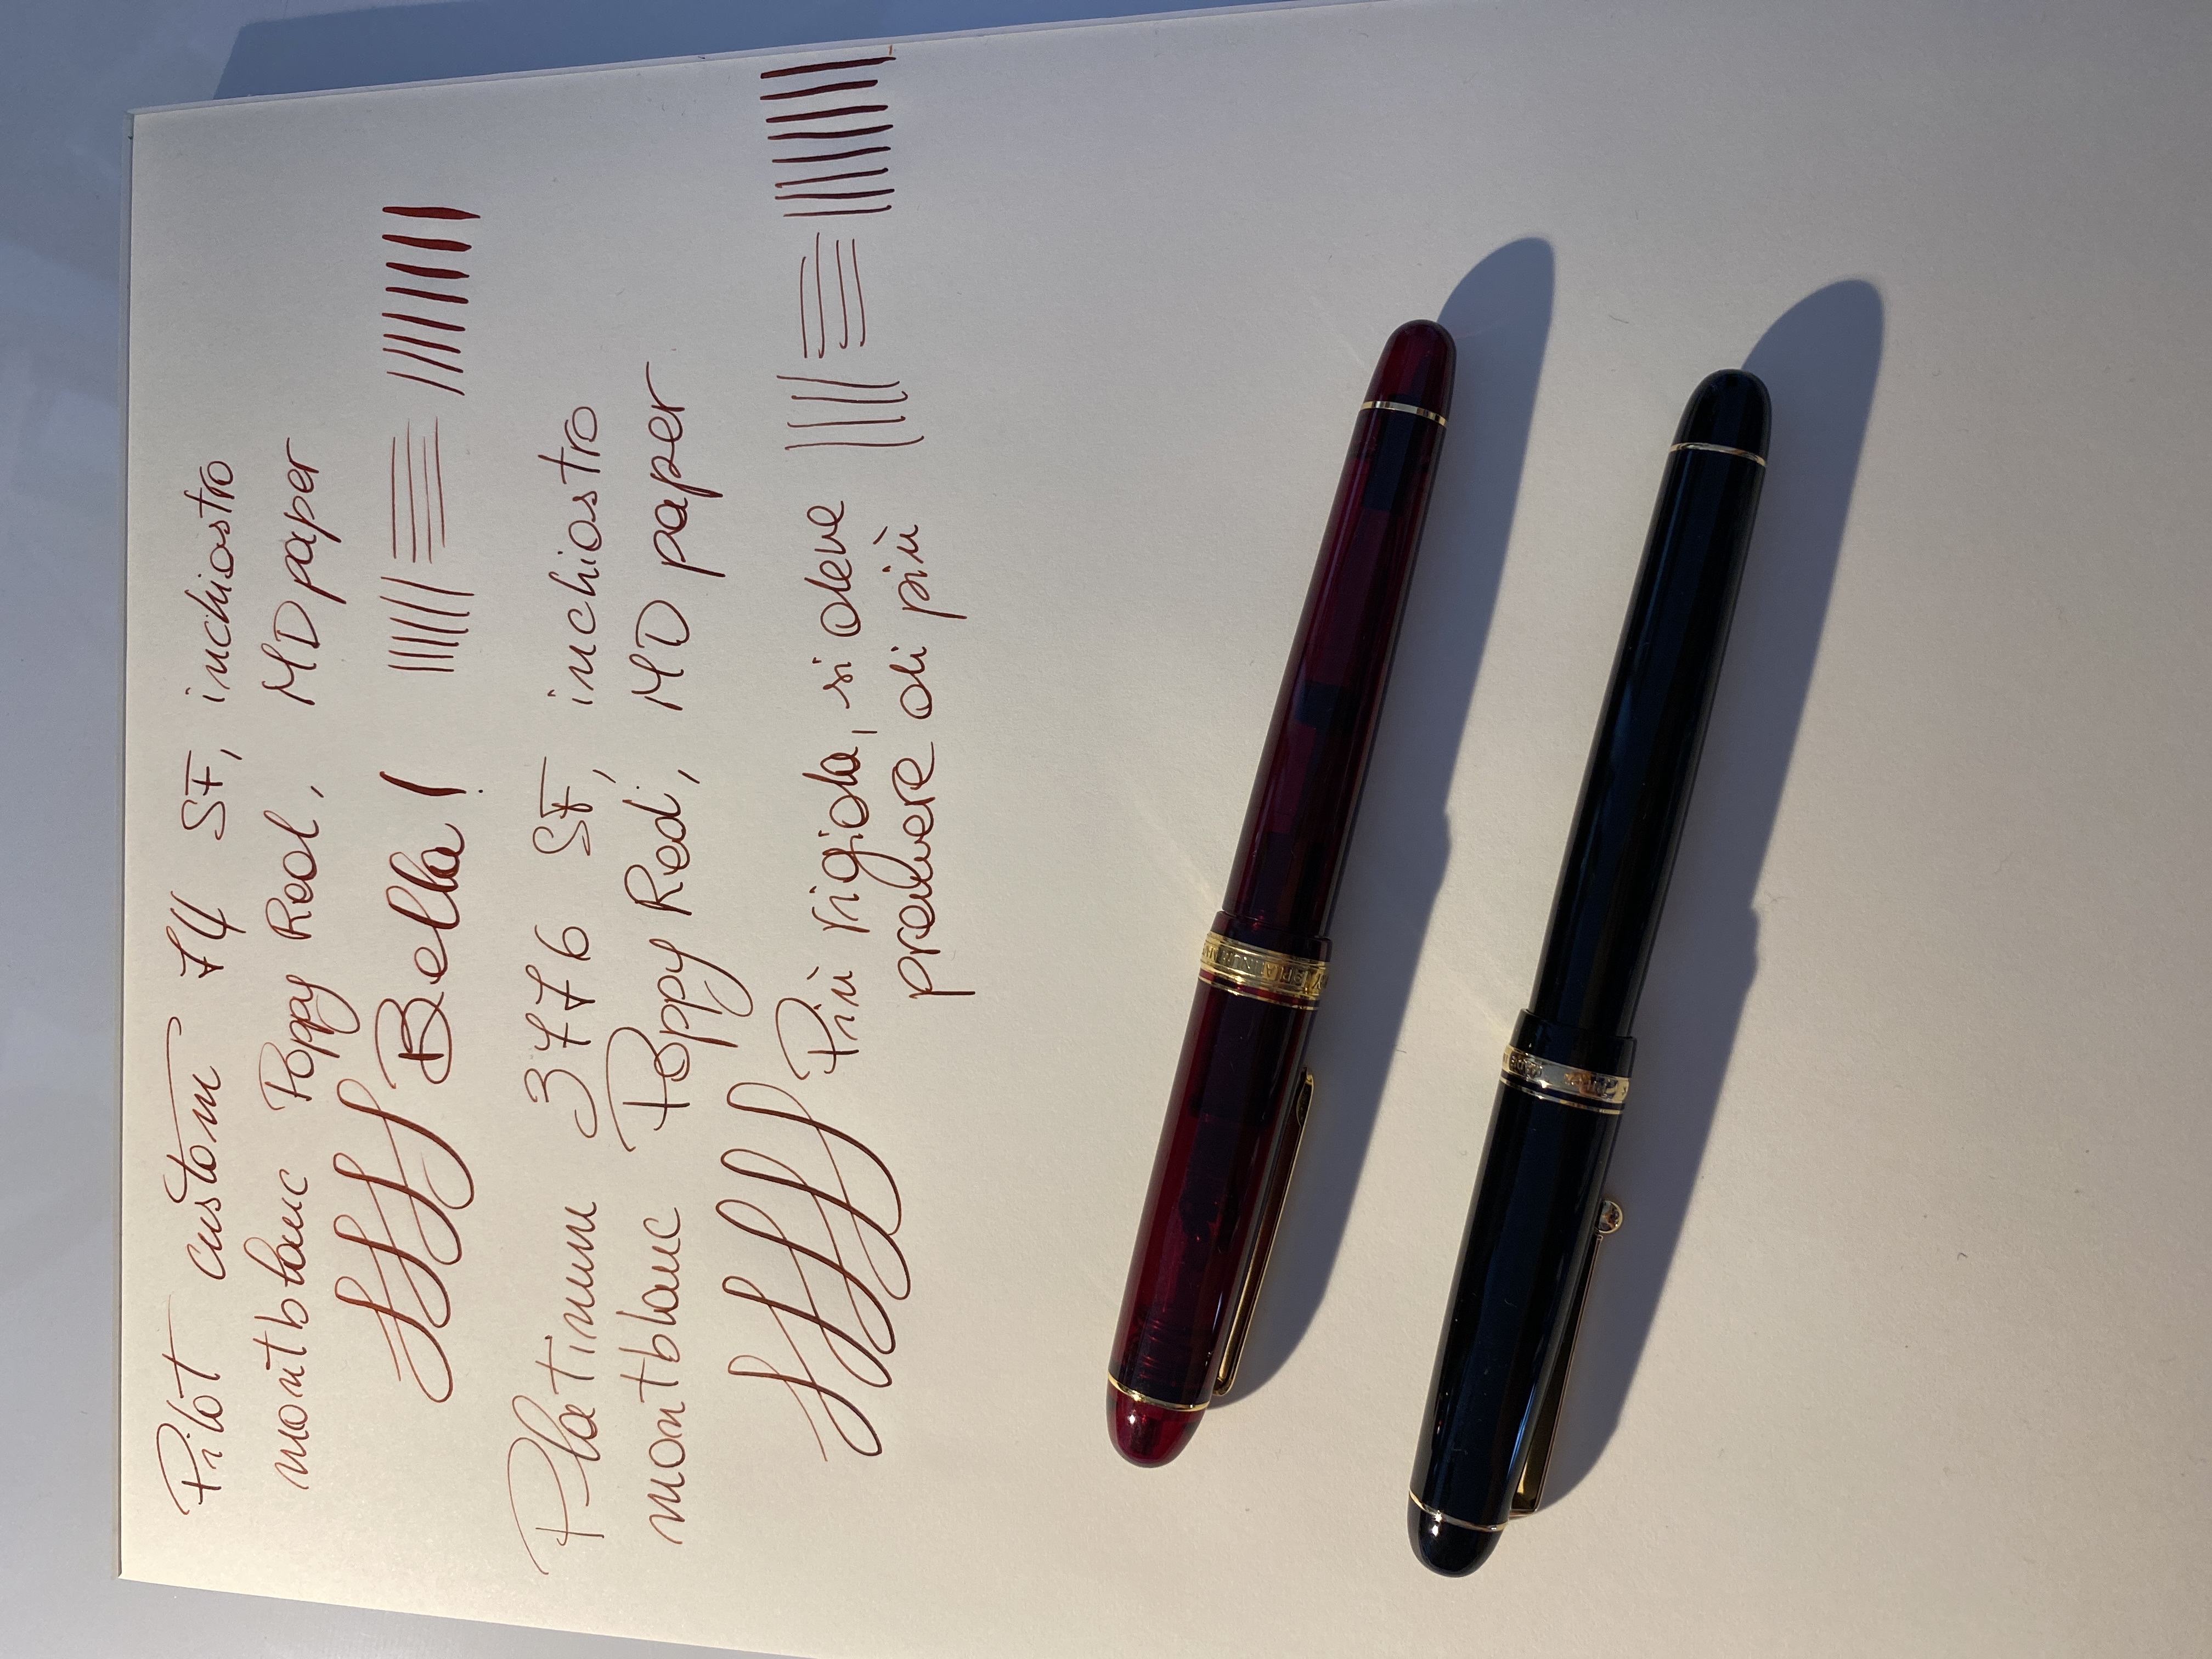 Pilot custom 74 SF, inchiostro
montblanc Poppy Red, MD paper
ffff Bella!
Platinum 3776 SF, inchiostro
montblanc Poppy Red, MD paper
ffff Più rigida, si deve
premere di più
PLATINUM